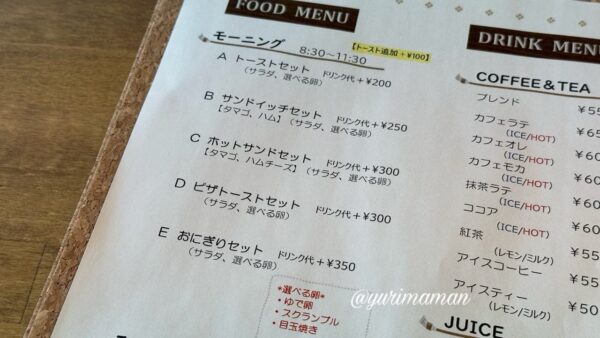 FOOD MENU
モーニング 8:30～11:30 【トースト追加 +¥100】
A トーストセット ドリンク代+¥200
(サラダ、選べる卵)
B サンドイッチセット ドリンク代+¥250
【タマゴ、ハム】(サラダ、選べる卵)
C ホットサンドセット ドリンク代+¥300
【タマゴ、ハムチーズ】(サラダ、選べる卵)
D ピザトーストセット ドリンク代+¥300
(サラダ、選べる卵)
E おにぎりセット ドリンク代+¥350
(サラダ、選べる卵)
*選べる卵*
・ゆで卵
・スクランブル
・目玉焼き
DRINK MENU
COFFEE＆TEA
ブレンド
カフェラテ
(ICE/HOT)
カフェオレ
(ICE/HOT)
カフェモカ
(ICE/HOT)
抹茶ラテ
(ICE/HOT)
ココア
(ICE/HOT)
紅茶
(レモン/ミルク)
アイスコーヒー
アイスティー
(レモン/ミルク)
JUICE
@yurimaman